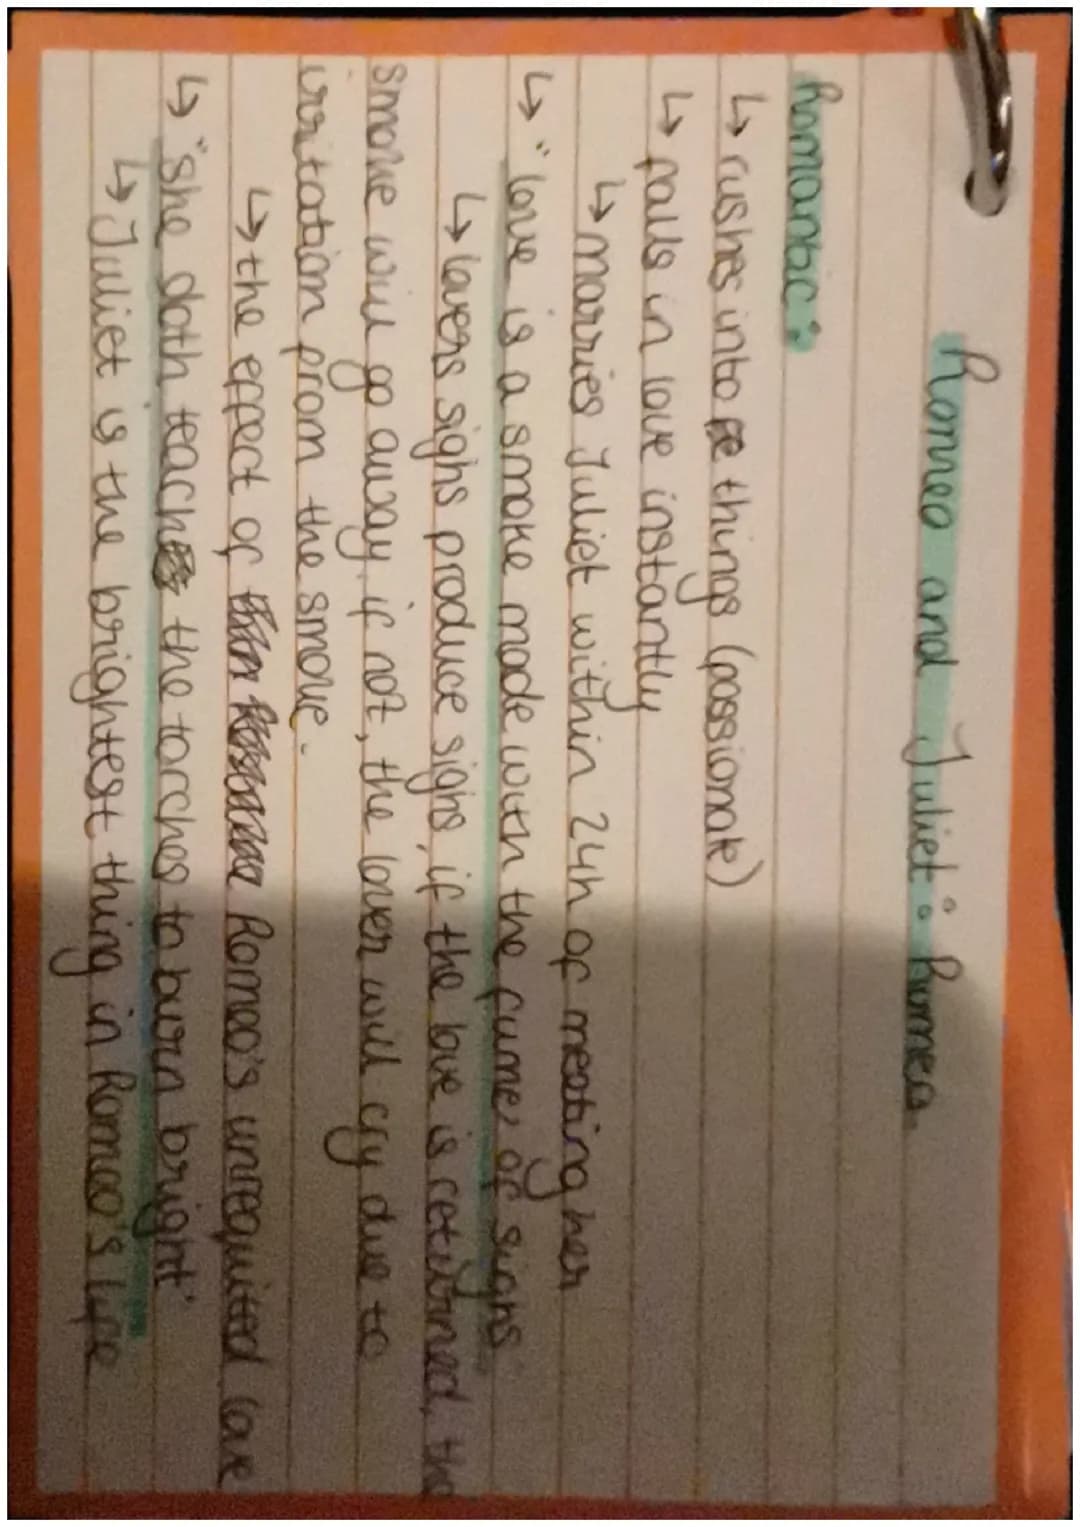 Romeo and Juliet: Romeo.
Romantic:
↳ rushes into things (passionate)
↳ falls in love instantly
↳ marries Juliet within 24h of meeting her
↳ "love is a smoke made with the fume of sighs"
↳ lovers sighs produce sighs, if the love is returned, the
smoke will go away, if not, the lover will cry due to
irritation from the smoke.
↳ the effect of Romeo's unrequitted love
↳ "She doth teach the torches to burn bright"
↳ Juliet is the brightest thing in Romeo's life